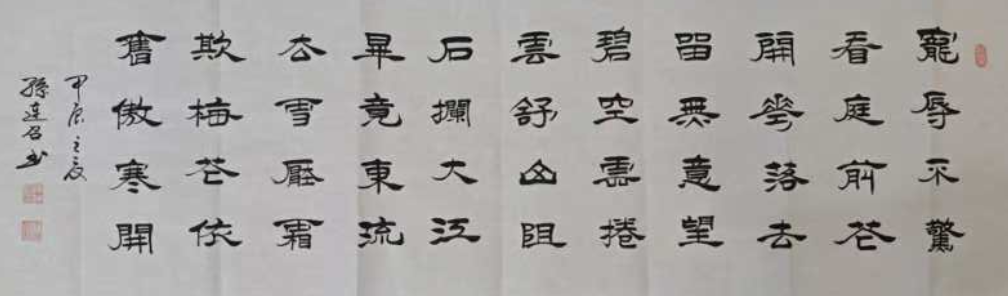 寵辱不驚
看庭前花
開華落去
留無意望
碧空雲捲
雲舒山阻
石攔大江
畢竟東流
去雪壓霜
欺梅花依
舊傲寒開
甲辰之夏
孫連召书